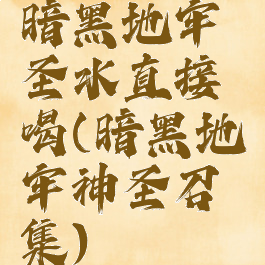 暗黑地牢
圣水直接
喝(暗黑地
牢神圣召
集)